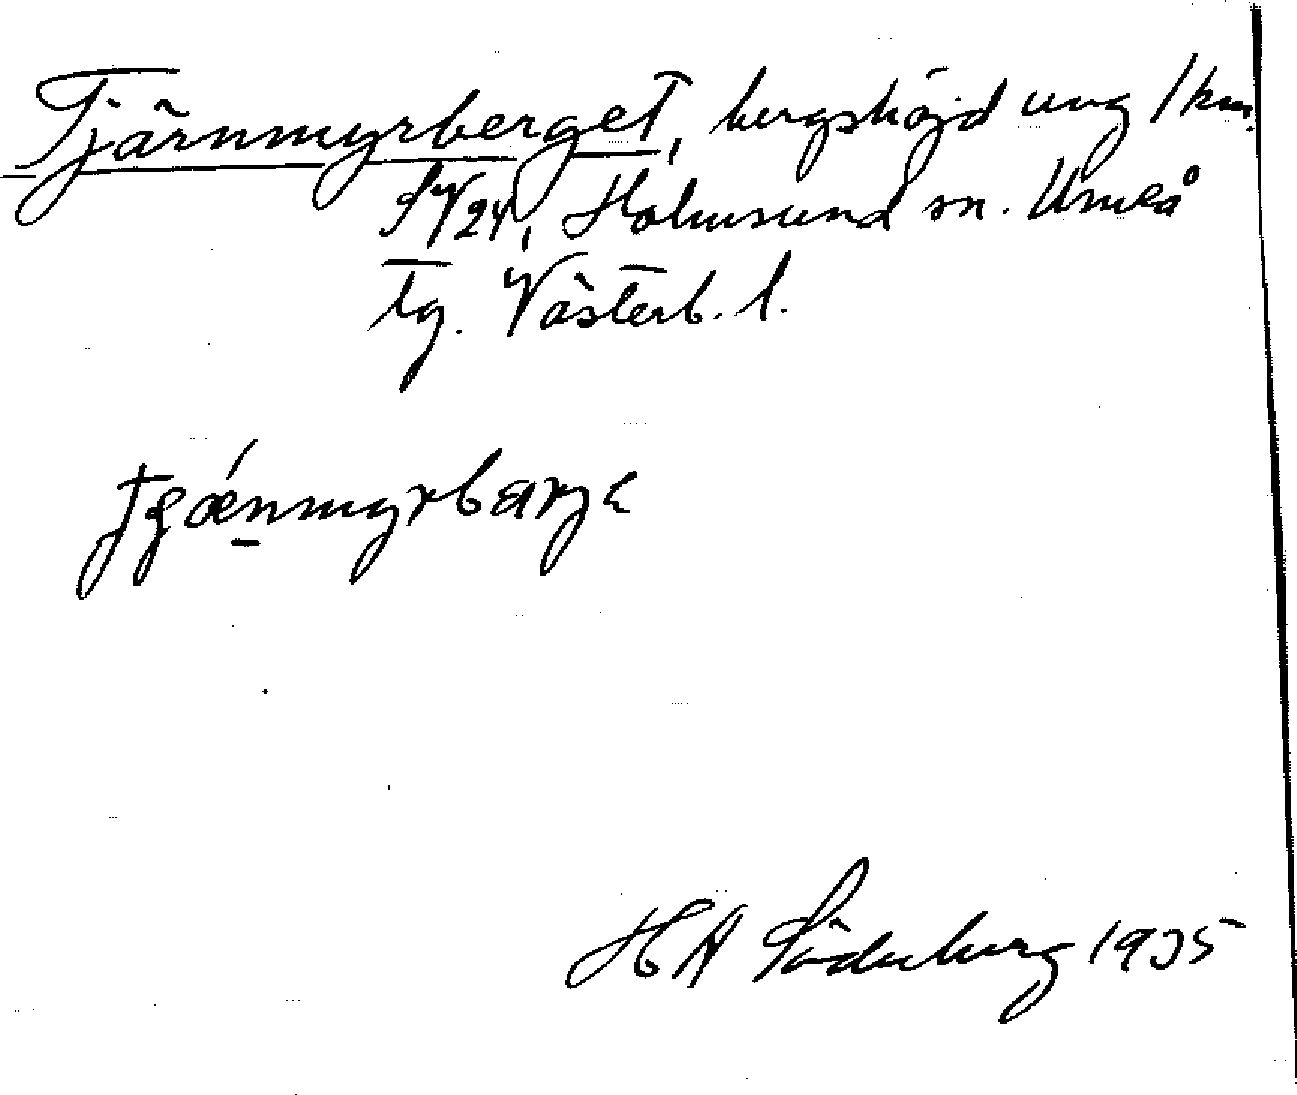 Tjärnmyrberget, bergshöjd ung 1 km.
SV 24, Holmsund sn. Umeå
tg. Västerb. l.
tjǽnmyrbærje
H A Söderberg 1935